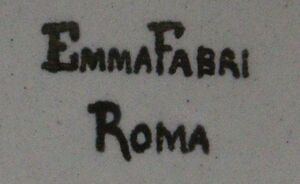 EMMAFABRI
ROMA